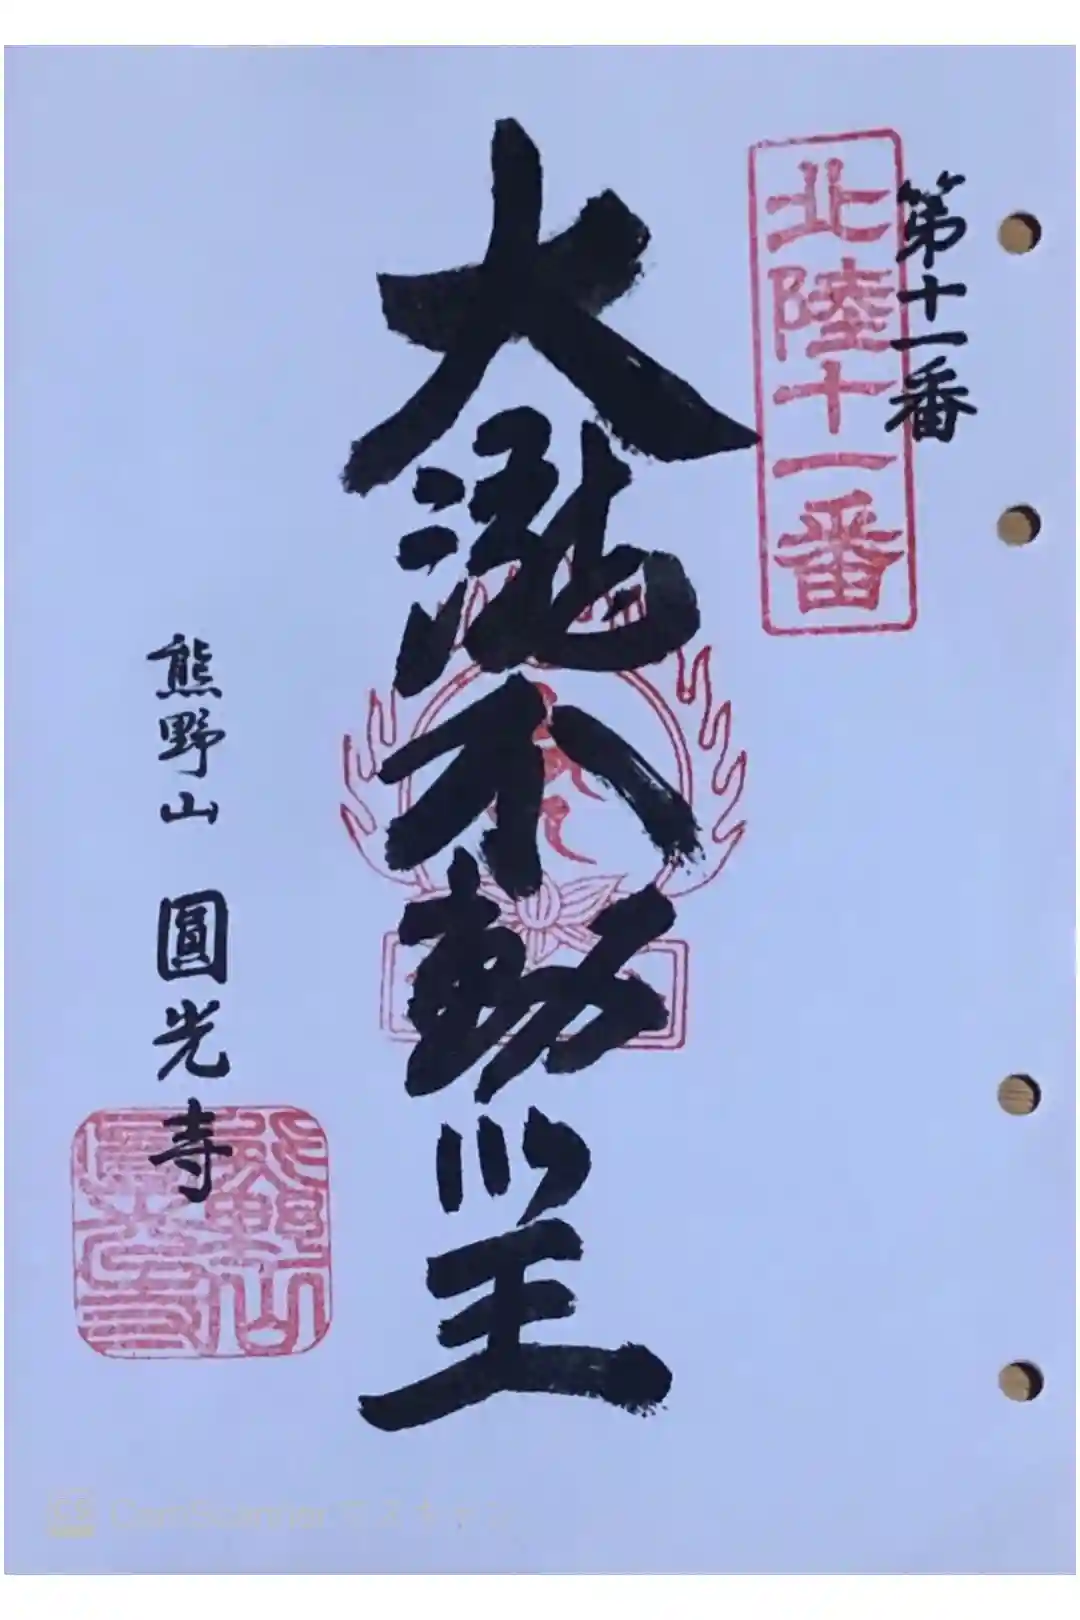 第十一番
北陸十一番
大滝不動明王
熊野山 圓光寺
熊野山
圓光寺
CamScanner でスキャン